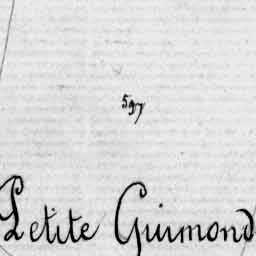 597
Petite Guimond